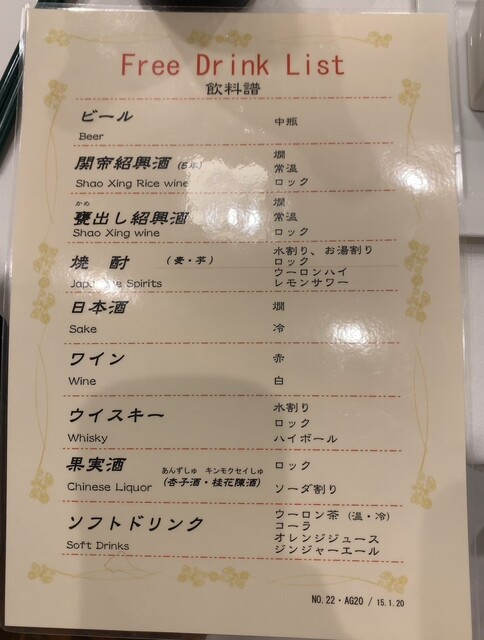 Free Drink List
飲料譜
ビール 中瓶
Beer
関帝紹興酒 (5年) 燗
常温
Shao Xing Rice wine ロック
かめ 燗
甕出し紹興酒 常温
Shao Xing wine ロック
水割り、お湯割り
焼 酎 (麦・芋) ロック
ウーロンハイ
Japanese Spirits レモンサワー
日本酒 燗
Sake 冷
ワイン 赤
Wine 白
水割り
ウイスキー ロック
Whisky ハイボール
果実酒 あんずしゅ キンモクセイしゅ ロック
Chinese Liquor (杏子酒・桂花陳酒) ソーダ割り
ウーロン茶 (温・冷)
ソフトドリンク コーラ
オレンジジュース
Soft Drinks ジンジャーエール
NO.22・AG20 / 15.1.20